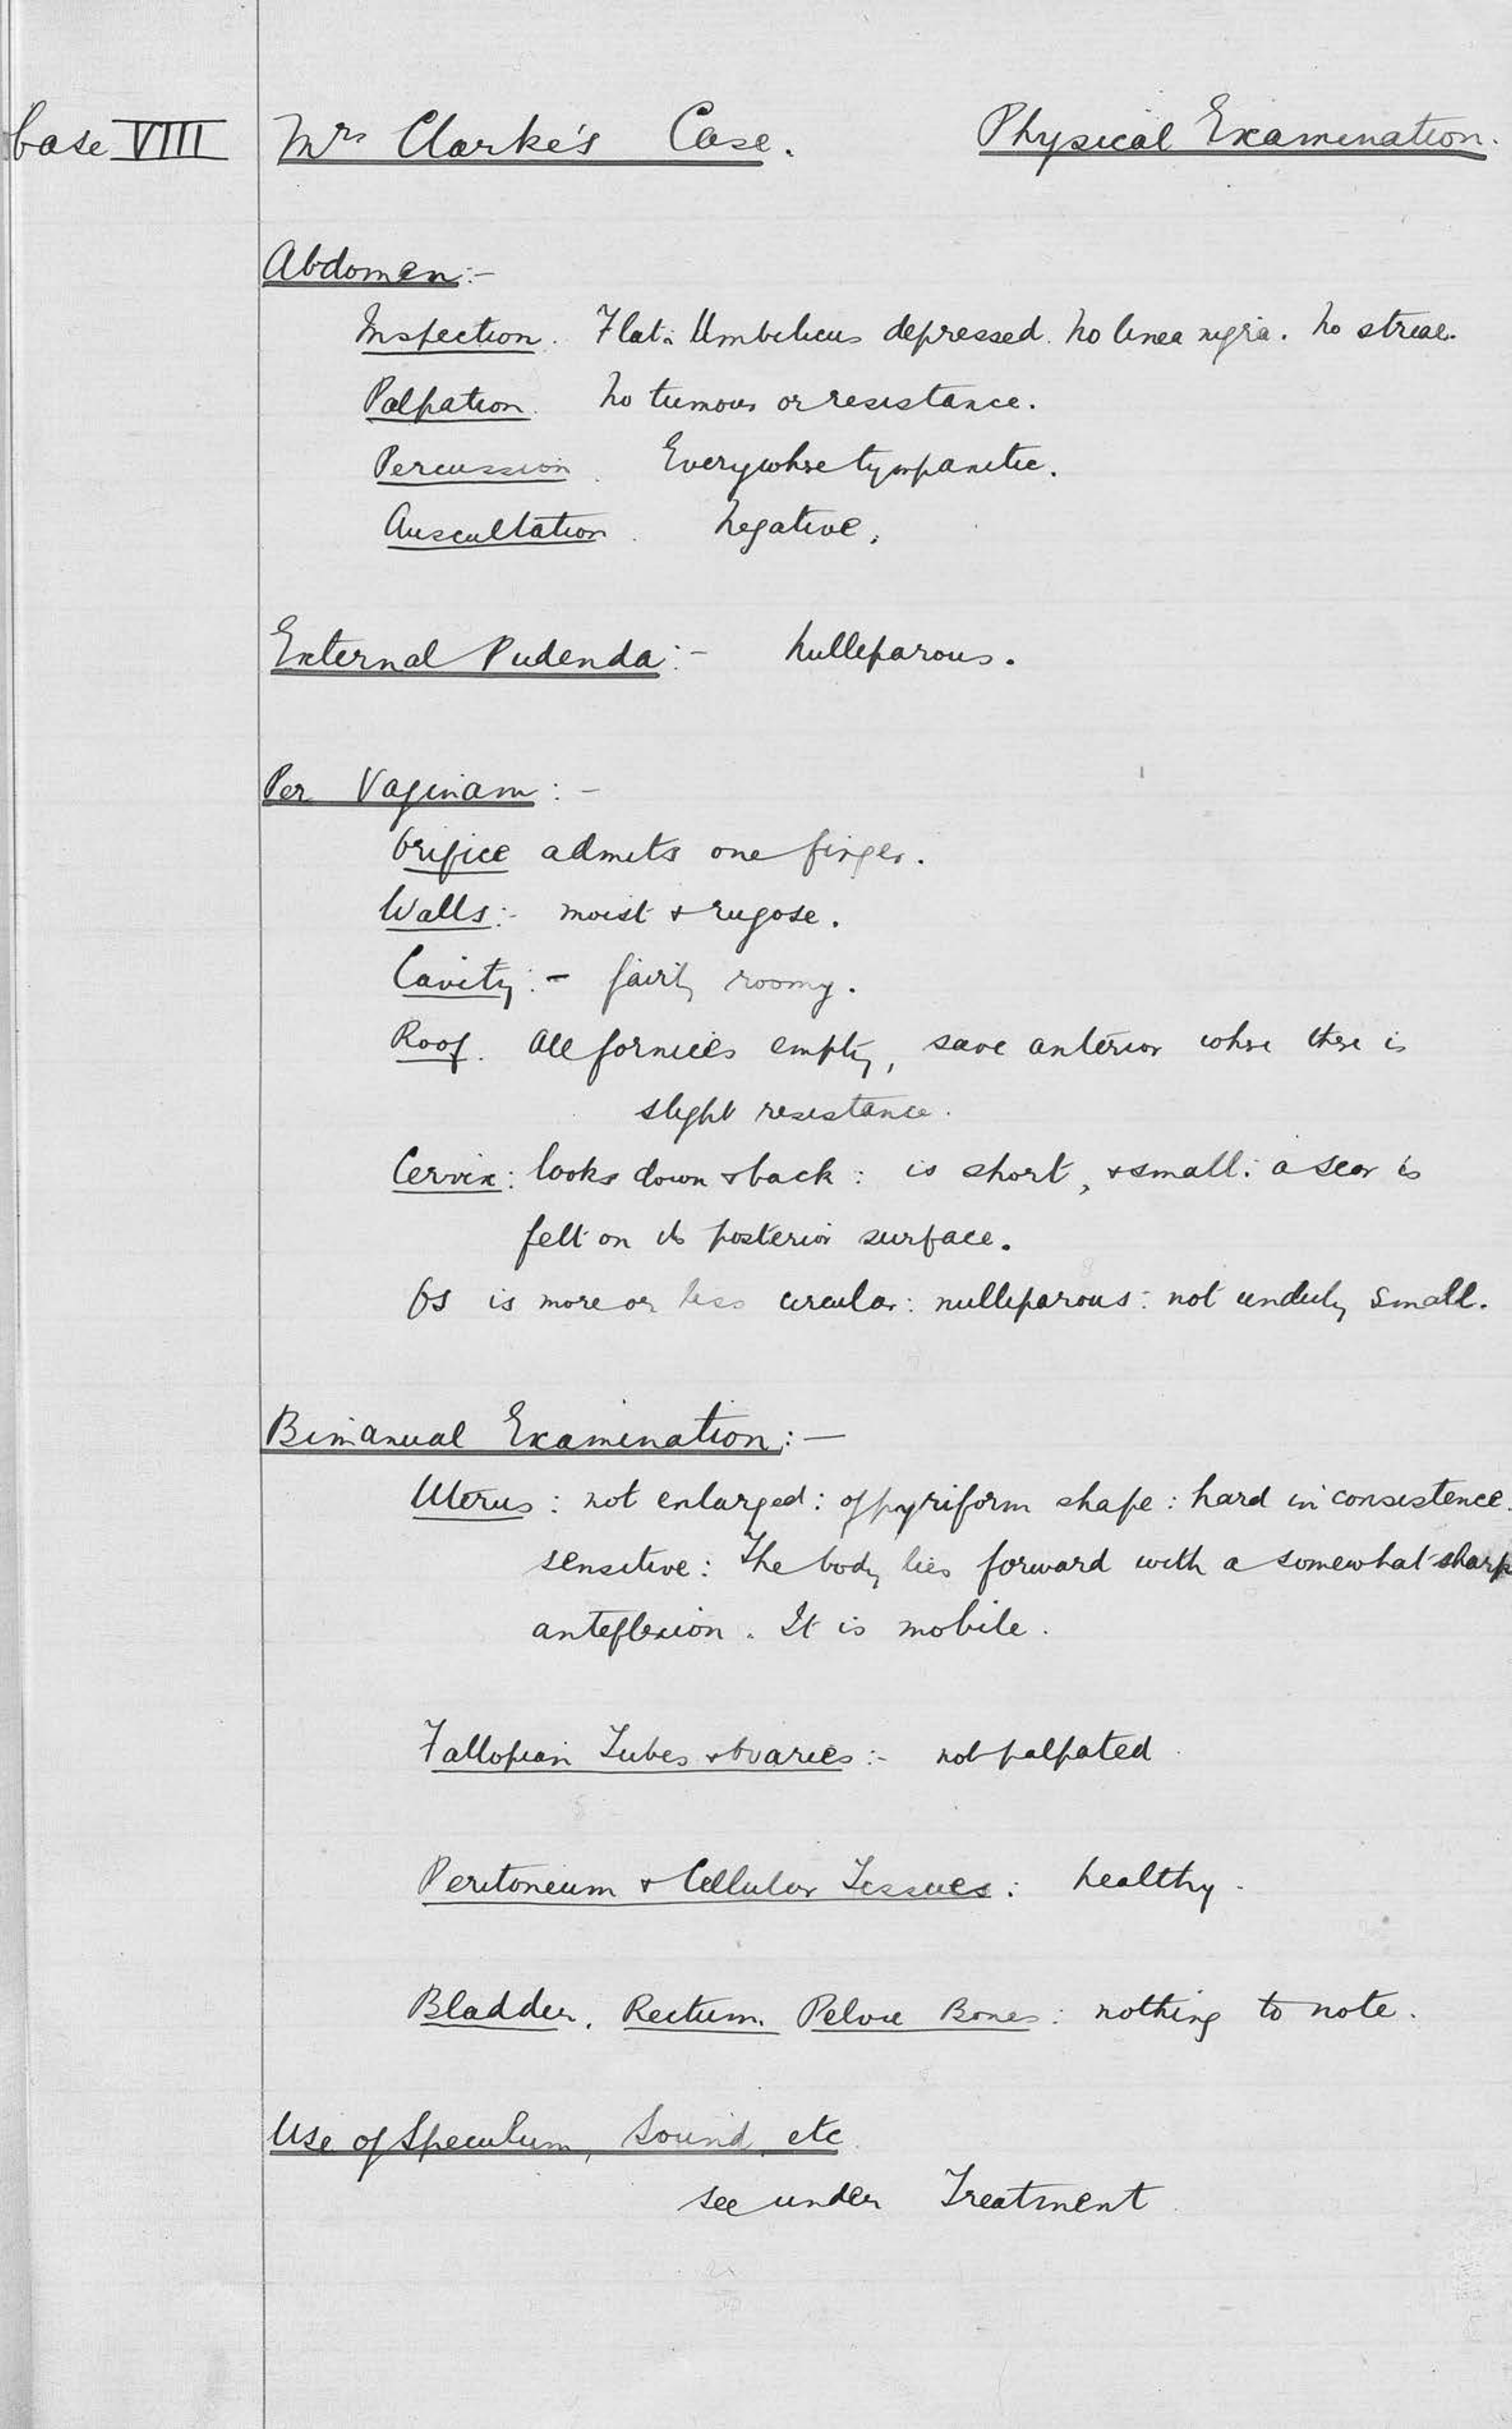 Case VIII Mrs Clarke's Case. Physical Examination.
Abdomen:-
Inspection. Flat. Umbilicus depressed. No linea nigra. No striae.
Palpation. No tumour or resistance.
Percussion. Everywhere tympanitic.
Auscultation. Negative.
External Pudenda:- Nulliparous.
Per Vaginam:-
Orifice admits one finger.
Walls:- moist & rugose.
Cavity:- fairly roomy.
Roof. All fornices empty, save anterior where there is
slight resistance.
Cervix: looks down & back: is short, & small: a scar is
felt on its posterior surface.
Os is more or less circular: nulliparous: not unduly small.
Bimanual Examination:-
Uterus: not enlarged: of pyriform shape: hard in consistence.
sensitive: The body lies forward with a somewhat sharp
anteflexion. It is mobile.
Fallopian Tubes & Ovaries:- not palpated.
Peritoneum & Cellular Tissues: healthy.
Bladder. Rectum. Pelvic Bones: nothing to note.
Use of Speculum, Sound, etc.
see under Treatment.